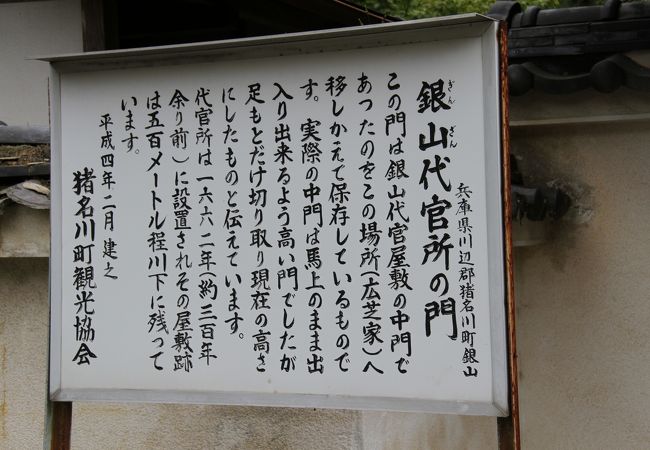 兵庫県川辺郡猪名川町銀山
銀山代官所の門
ぎんざん
この門は銀山代官屋敷の中門で
あったのをこの場所(広芝家)へ
移しかえて保存しているもので
す。実際の中門は馬上のまま出
入り出来るよう高い門でしたが
足もとだけ切り取り現在の高さ
にしたものと伝えています。
代官所は一六六二年(約三百年
余り前)に設置されその屋敷跡
は五百メートル程川下に残って
います。
平成四年二月 建之
猪名川町観光協会